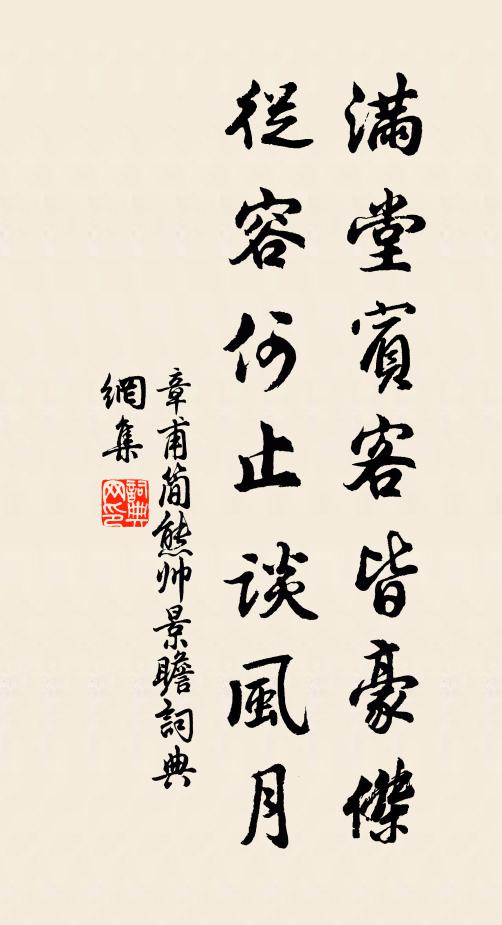 滿堂賓客皆豪傑
從容何止談風月
章甫簡熊帥景瞻詞典
網集
詞典
网印